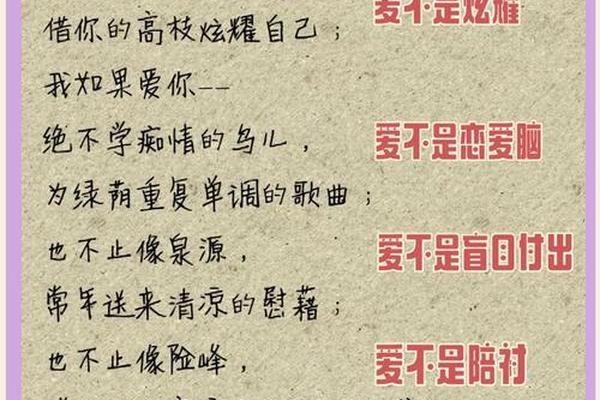 爱不是炫耀
借你的高枝炫耀自己；
我如果爱你--
绝不学痴情的鸟儿，
爱不是恋爱脑
为绿荫重复单调的歌曲；
也不止像泉源，
爱不是盲目付出
常年送来清凉的慰藉；
也不止像险峰，
爱不是陪衬